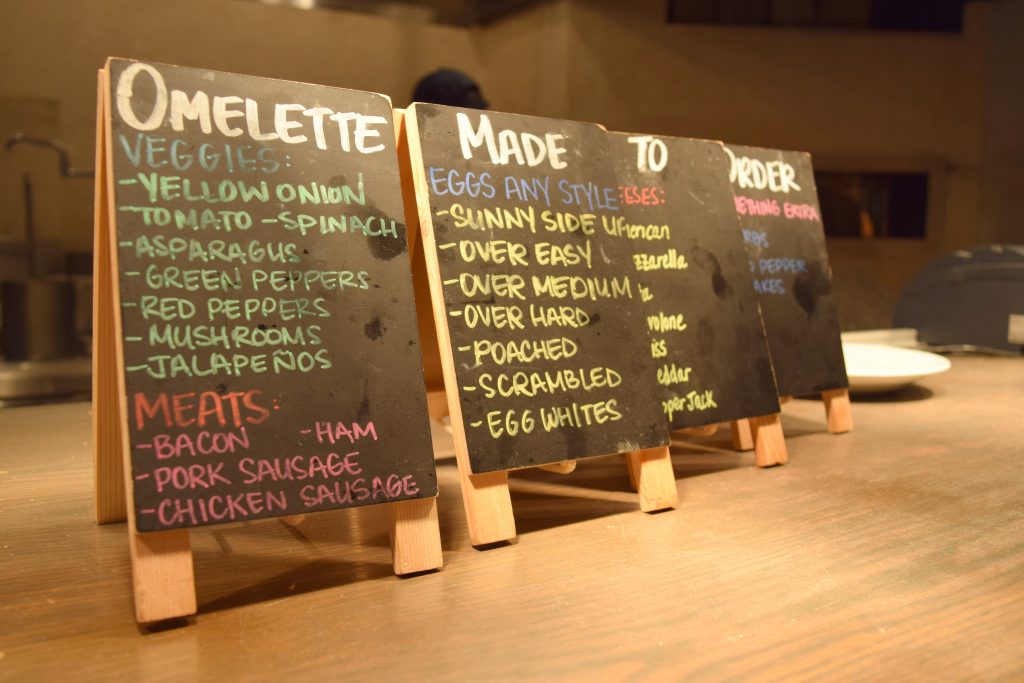 OMELETTE
VEGGIES:
-YELLOW ONION
-TOMATO -SPINACH
-ASPARAGUS
-GREEN PEPPERS
-RED PEPPERS
-MUSHROOMS
-JALAPEÑOS
MEATS:
-BACON -HAM
-PORK SAUSAGE
-CHICKEN SAUSAGE
MADE
EGGS ANY STYLE
-SUNNY SIDE UP
-OVER EASY
-OVER MEDIUM
-OVER HARD
-POACHED
-SCRAMBLED
-EGG WHITES
TO
ESES:
erican
zzarella
ta
volone
iss
eddar
pper Jack
ORDER
METHING EXTRA
PEPPER
AKES